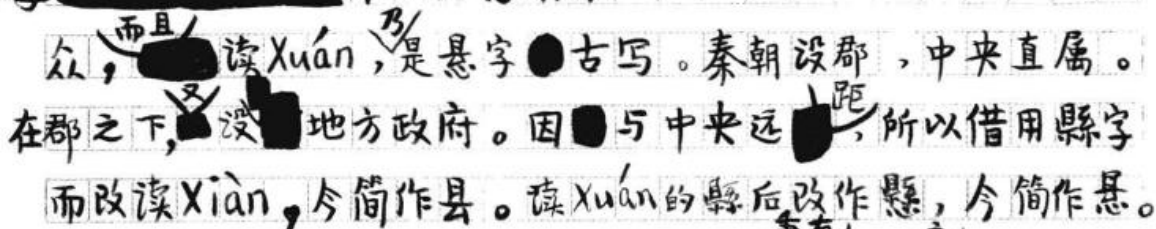 众，而且读Xuán，乃是悬字古写。秦朝设郡，中央直属。
在郡之下，又设地方政府。因与中央远距，所以借用縣字
而改读Xiàn，今简作县。读Xuán的縣后改作懸，今简作悬。